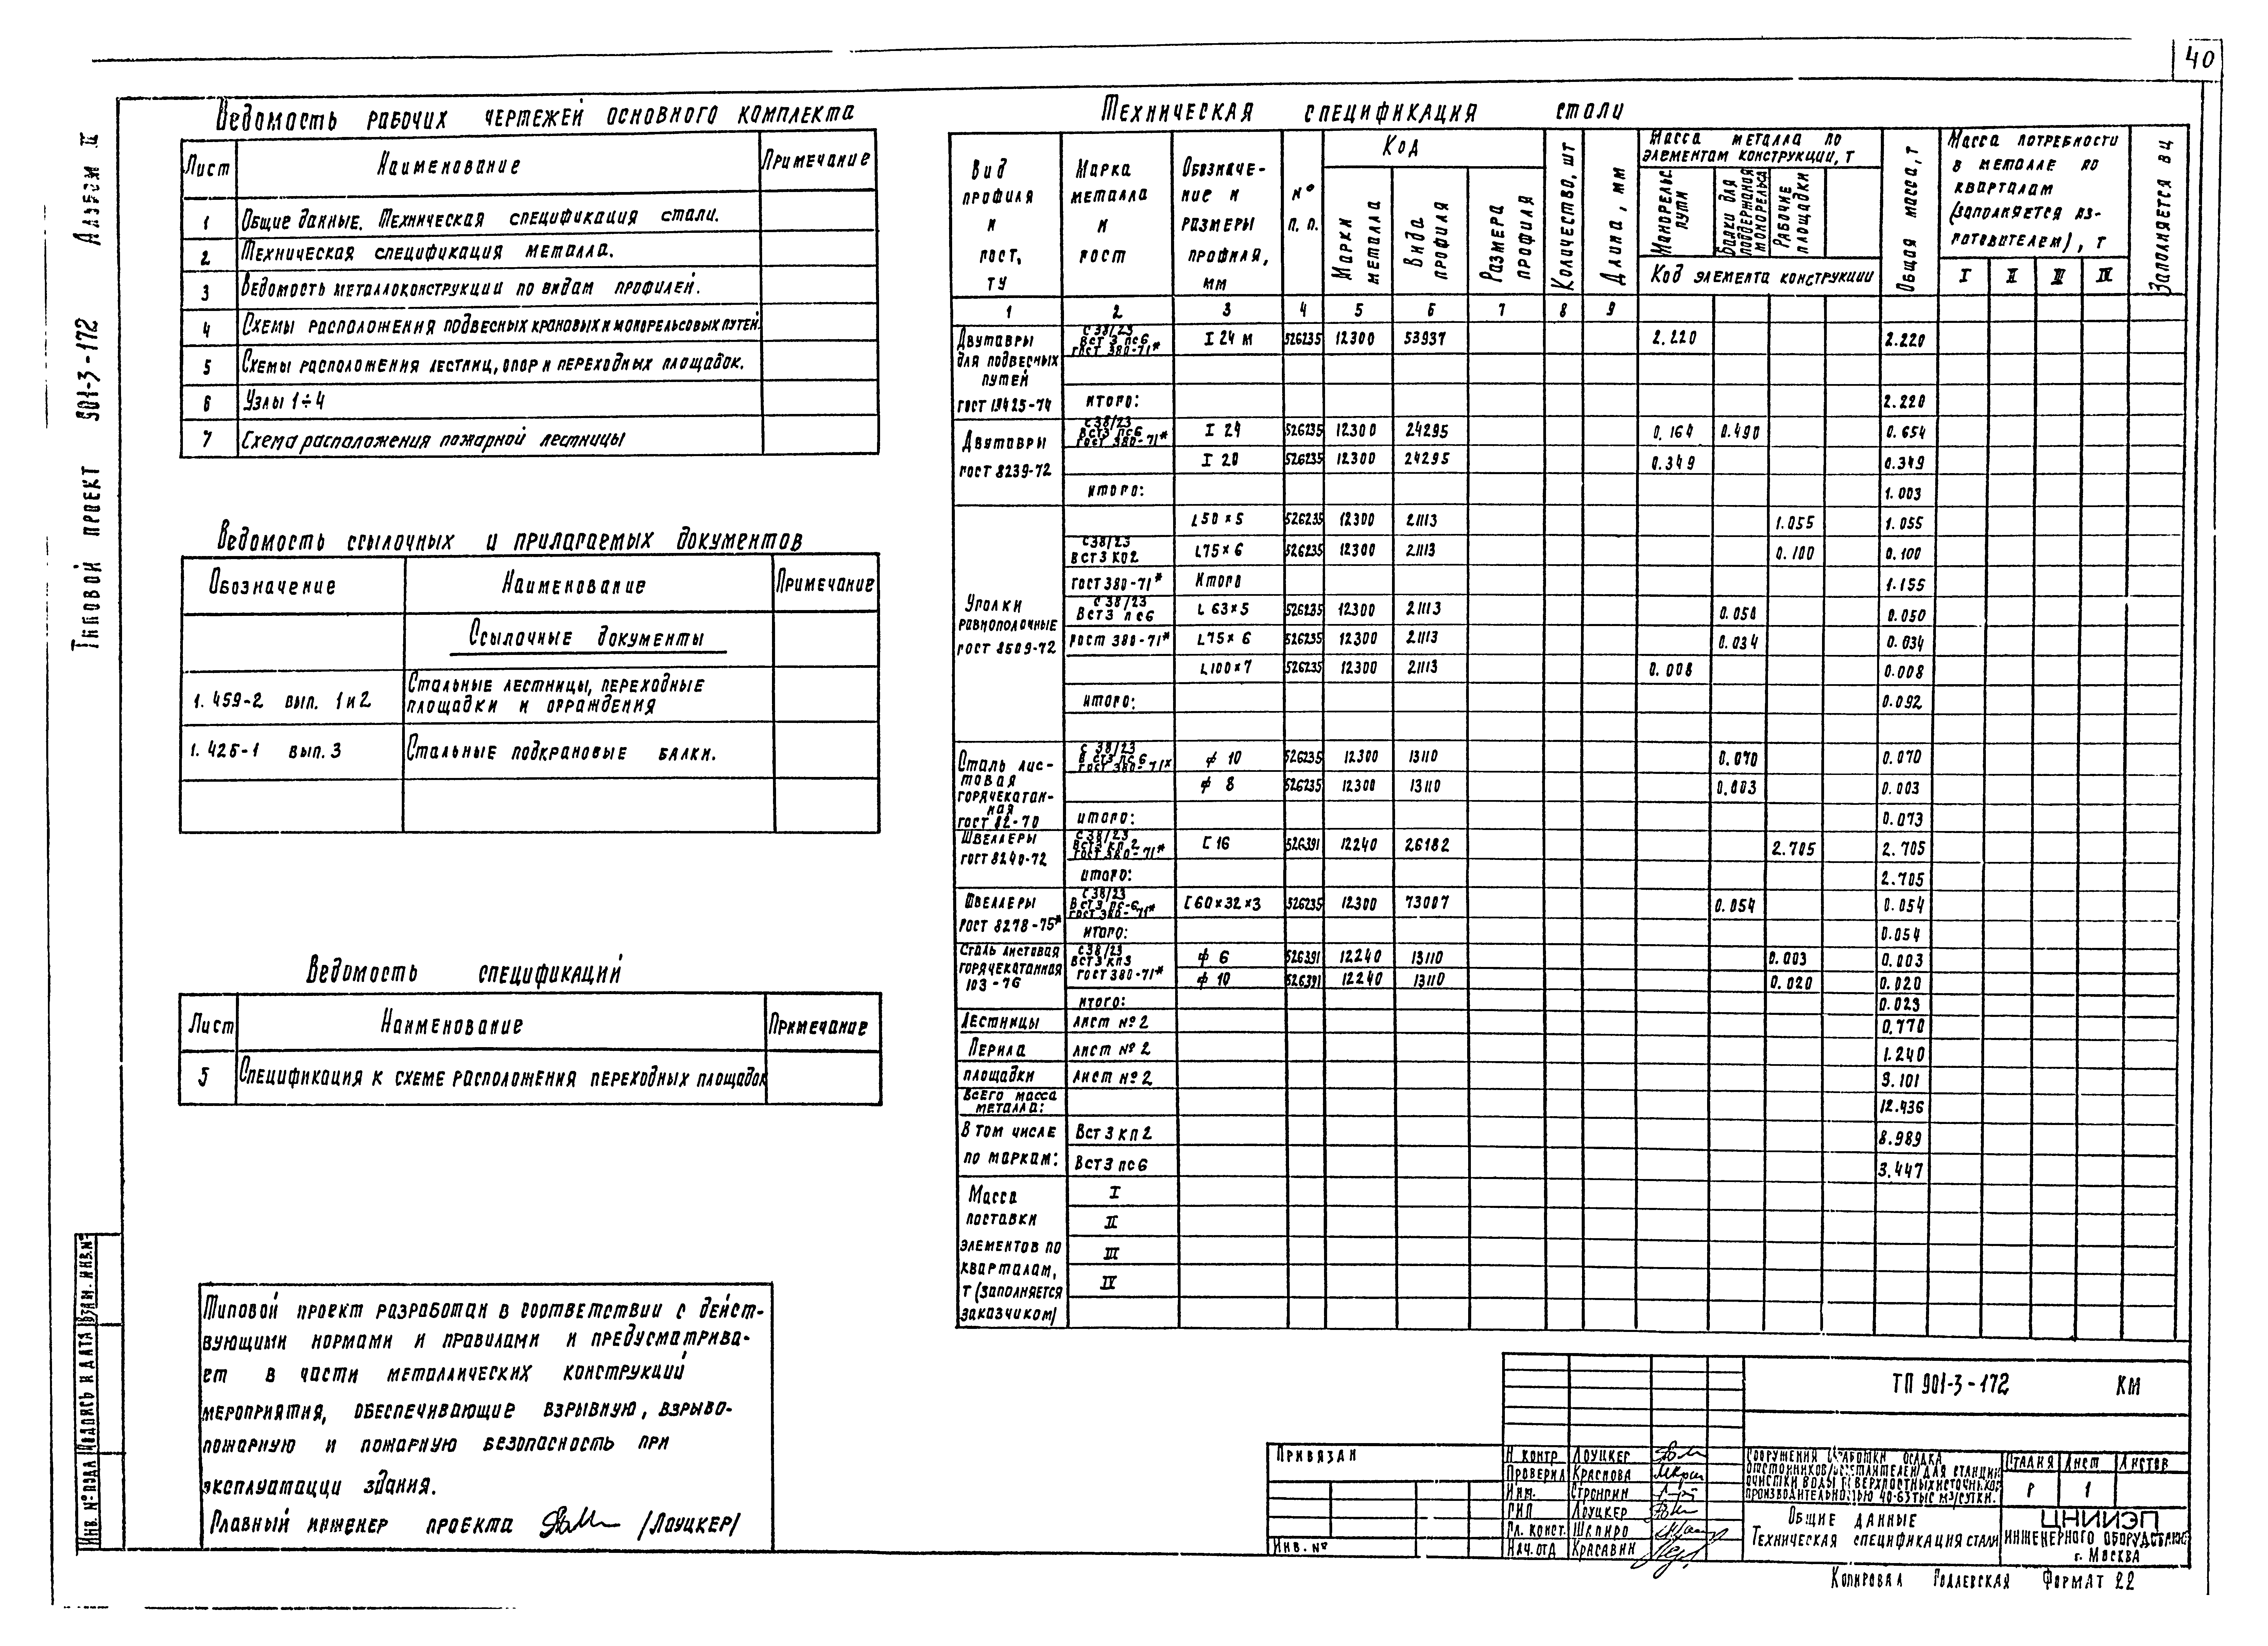 40
Альбом II
Типовой проект 901-3-172
Ведомость рабочих чертежей основного комплекта
Лист Наименование Примечание
1 Общие данные. Техническая спецификация стали.
2 Техническая спецификация металла.
3 Ведомость металлоконструкции по видам профилей.
4 Схемы расположения подвесных крановых и монорельсовых путей.
5 Схемы расположения лестниц, опор и переходных площадок.
6 Узлы 1÷4
7 Схема расположения пожарной лестницы
Ведомость ссылочных и прилагаемых документов
Обозначение Наименование Примечание
Ссылочные документы
1.459-2 вып. 1и2 Стальные лестницы, переходные
площадки и ограждения
1.426-1 вып. 3 Стальные подкрановые балки.
Ведомость спецификаций
Лист Наименование Примечание
5 Спецификация к схеме расположения переходных площадок
Типовой проект разработан в соответствии с дейст-
вующими нормами и правилами и предусматрива-
ет в части металлических конструкций
мероприятия, обеспечивающие взрывную, взрыво-
пожарную и пожарную безопасность при
эксплуатации здания.
Главный инженер проекта /Лоуцкер/
Техническая спецификация стали
Вид профиля и гост, ТУ
Марка металла и гост
Обозначе-ние и размеры профиля, мм
N° п. п.
Код
Марки металла
Вида профиля
Размера профиля
Количество, шт
Длина, мм
Масса металла по элементам конструкции, т
Монорельс. пути
Балки для поддержания монорельса
Рабочие площадки
Код элемента конструкции
Общая масса, т
Масса потребности в металле по кварталам (заполняется из-готовителем), т
I II III IV
Заполняется вц
1 2 3 4 5 6 7 8 9
Двутавры для подвесных путей гост 19425-74
С 38/23 Вст 3 пс6 гост 380-71* I 24 м 526235 12300 53937 2.220 2.220
итого: 2.220
Двутавры гост 8239-72
С38/23 Вст3 пс6 гост 380-71* I 24 526235 12300 24295 0.164 0.490 0.654
I 20 526235 12300 24295 0.349 0.349
итого: 1.003
Уголки равнополочные гост 8509-72
L50×5 526235 12300 21113 1.055 1.055
С38/23 Вст3 кп2 L75×6 526235 12300 21113 0.100 0.100
гост 380-71* Итого 1.155
С 38/23 Вст3 пс6 L 63×5 526235 12300 21113 0.050 0.050
гост 380-71* L75×6 526235 12300 21113 0.034 0.034
L100×7 526235 12300 21113 0.008 0.008
итого: 0.092
Сталь лис-товая горячекатан-ная гост 82-70
С 38/23 В ст3 пс6 гост 380-71* ф 10 526235 12300 13110 0.070 0.070
ф 8 526235 12300 13110 0.003 0.003
итого: 0.073
Швеллеры гост 8240-72
С38/23 Вст3 кп2 гост 380-71* [ 16 526391 12240 26182 2.705 2.705
итого: 2.705
Швеллеры гост 8278-75*
С38/23 Вст3 пс-6 гост 380-71* [60×32×3 526235 12300 73007 0.054 0.054
итого: 0.054
Сталь листовая горячекатанная 103-76
С38/23 Вст3 кп3 ф 6 526391 12240 13110 0.003 0.003
гост 380-71* ф 10 526391 12240 13110 0.020 0.020
итого: 0.023
Лестницы Лист N° 2 0.770
Перила Лист N° 2 1.240
площадки Лист N° 2 3.101
Всего масса металла: 12.436
В том числе Вст 3 кп 2 8.989
по маркам: Вст3 пс6 3.447
Масса поставки элементов по кварталам, т (заполняется заказчиком)
I
II
III
IV
Инв. N° подл Подпись и дата Взам. инв.N°
Привязан
Инв. N°
Н. контр Лоуцкер
Проверил Краснова
Инж. Стронгин
ГИП Лоуцкер
Гл. конст. Шапиро
Нач. отд Красавин
ТП 901-3-172 КМ
Сооружения обработки осадка
производительностью 40-63 тыс м3/сутки.
Стадия Лист Листов
Р 1
Общие данные
Техническая спецификация стали
ЦНИИЭП
инженерного оборудования
г. Москва
Копировал Формат 22